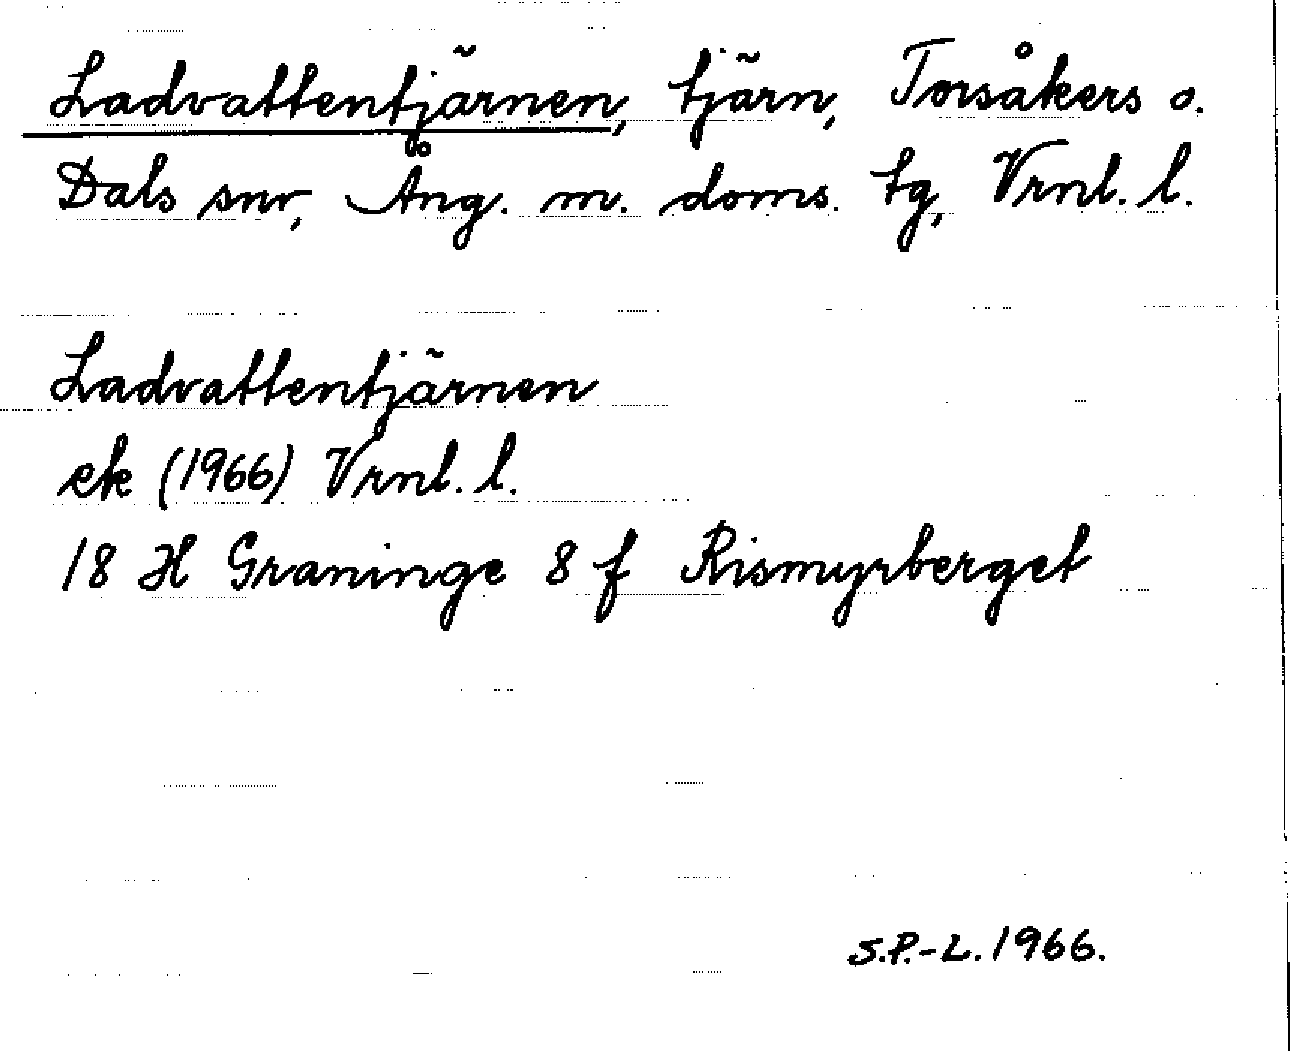 Ladvattentjärnen, tjärn, Torsåkers o.
Dals snr, Ång. m. doms. tg, Vrnl. l.
Ladvattentjärnen
ek (1966) Vrnl. l.
18 H Graninge 8 f Rismyrberget
S.P.-L. 1966.